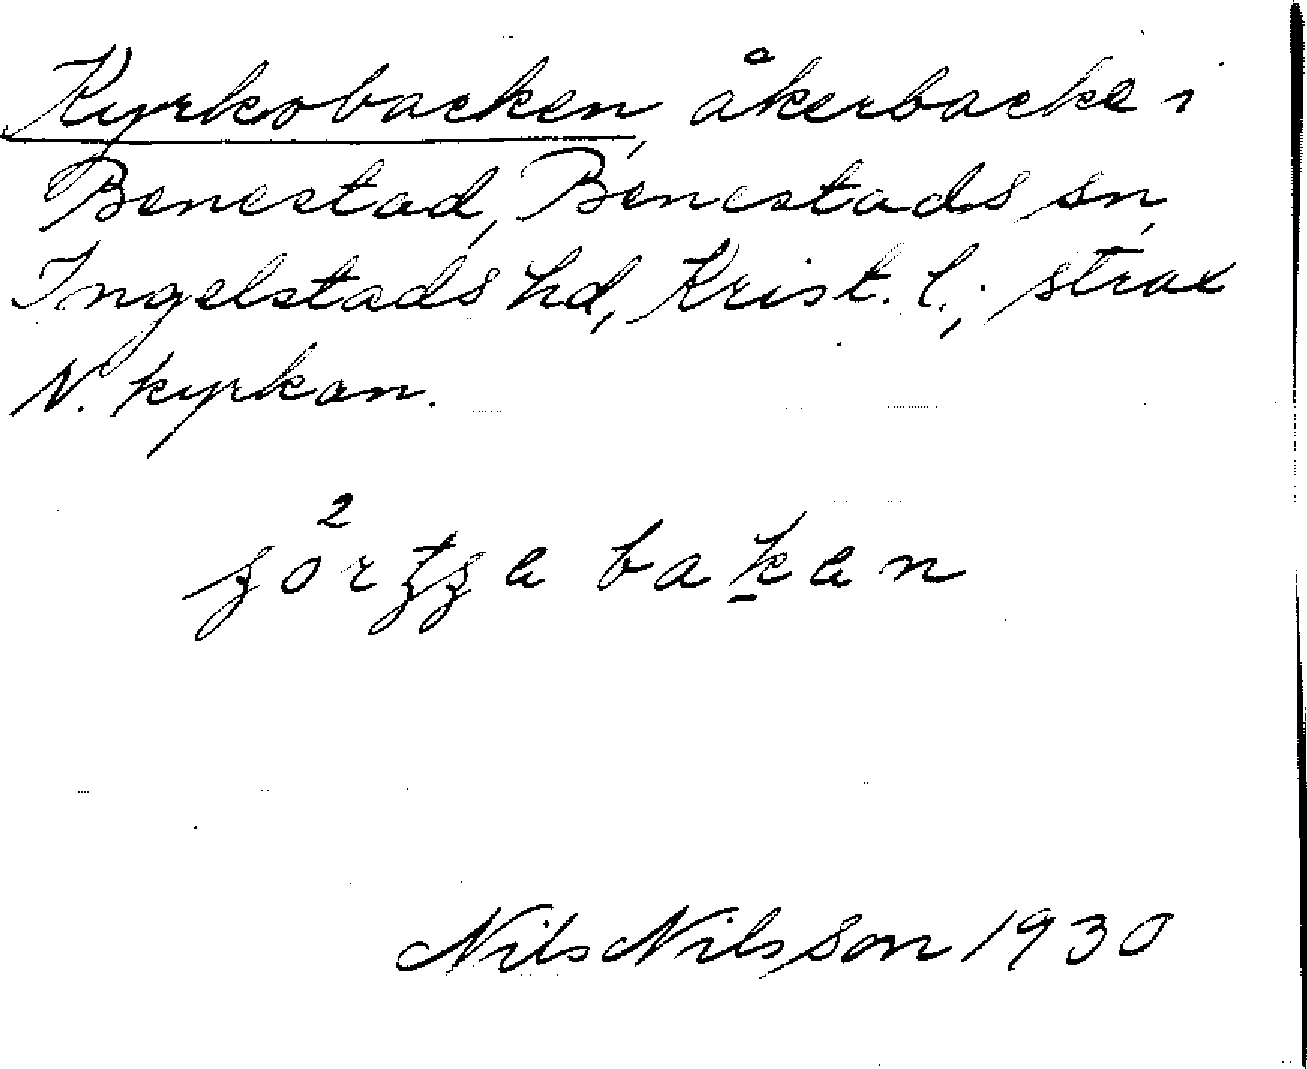 Kyrkobacken, åkerbacke i
Benestad, Benestads sn,
Ingelstads hd, Krist. l.; strax
N. kyrkan.
Nils Nilsson 1930